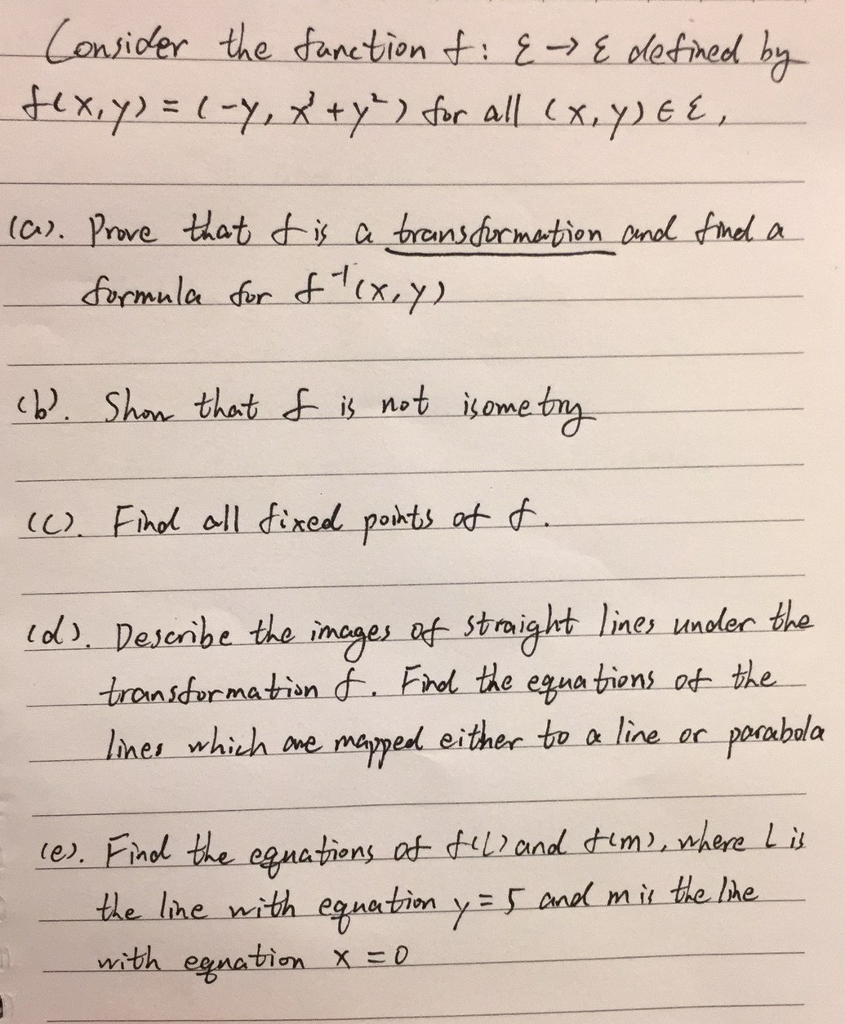 Consider the function f: Ɛ → Ɛ defined by
f(x,y) = (-y, x³+y²) for all (x,y) ∈ Ɛ,
(a). Prove that f is a transformation and find a
formula for f⁻¹(x,y)
(b). Show that f is not isometry
(c). Find all fixed points of f.
(d). Describe the images of straight lines under the
transformation f. Find the equations of the
lines which are mapped either to a line or parabola
(e). Find the equations of f(L) and f(m), where L is
the line with equation y = 5 and m is the line
with equation x = 0